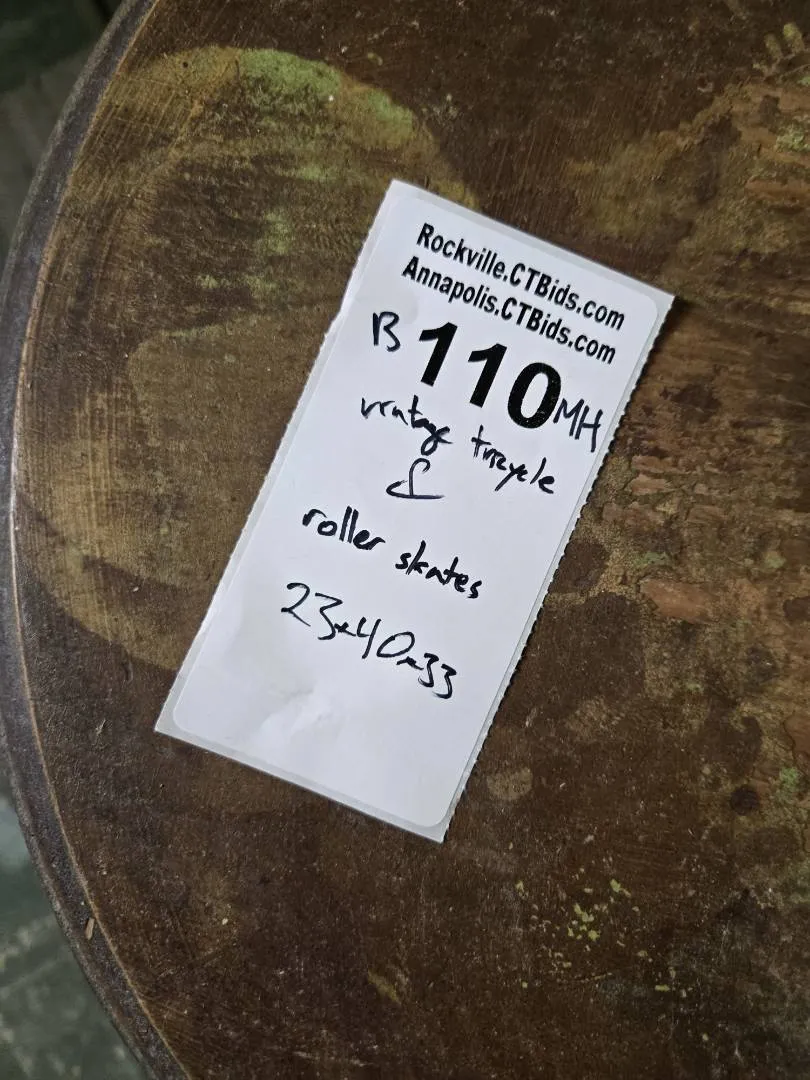 Rockville.CTBids.com
Annapolis.CTBids.com
B 110 MH
vintage tricycle
&
roller skates
23x40x33